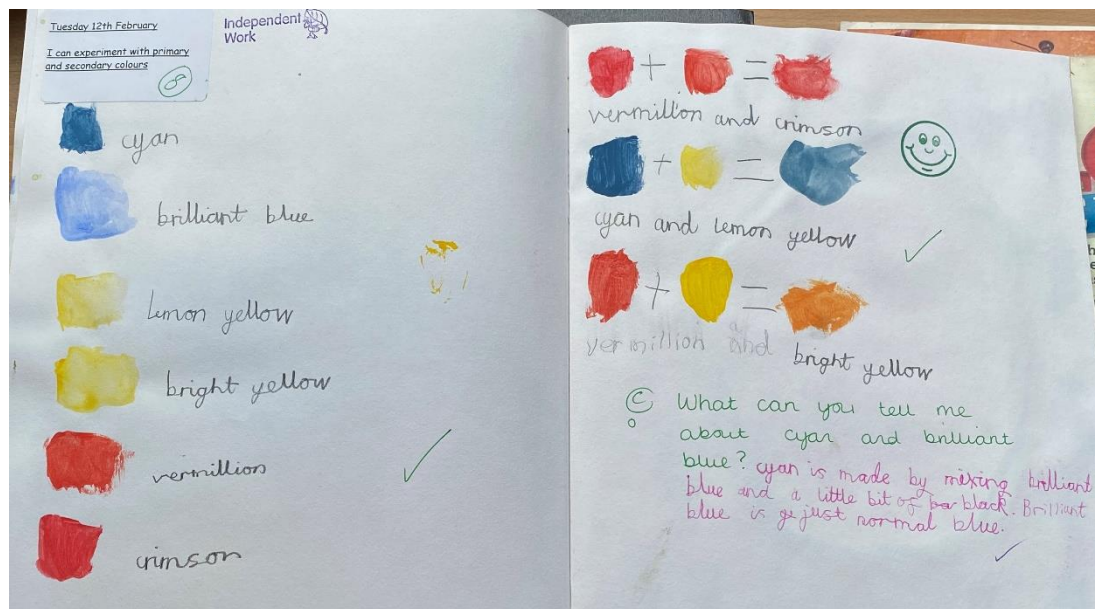 Tuesday 12th February
I can experiment with primary
and secondary colours
Independent
Work
cyan
brilliant blue
lemon yellow
bright yellow
vermillion
crimson
+ =
vermillion and crimson
+ =
cyan and lemon yellow
+ =
vermillion and
bright yellow
What can you tell me
about cyan and brilliant
blue? cyan is made by mixing brilliant
blue and a little bit of black. Brilliant
blue is just normal blue.